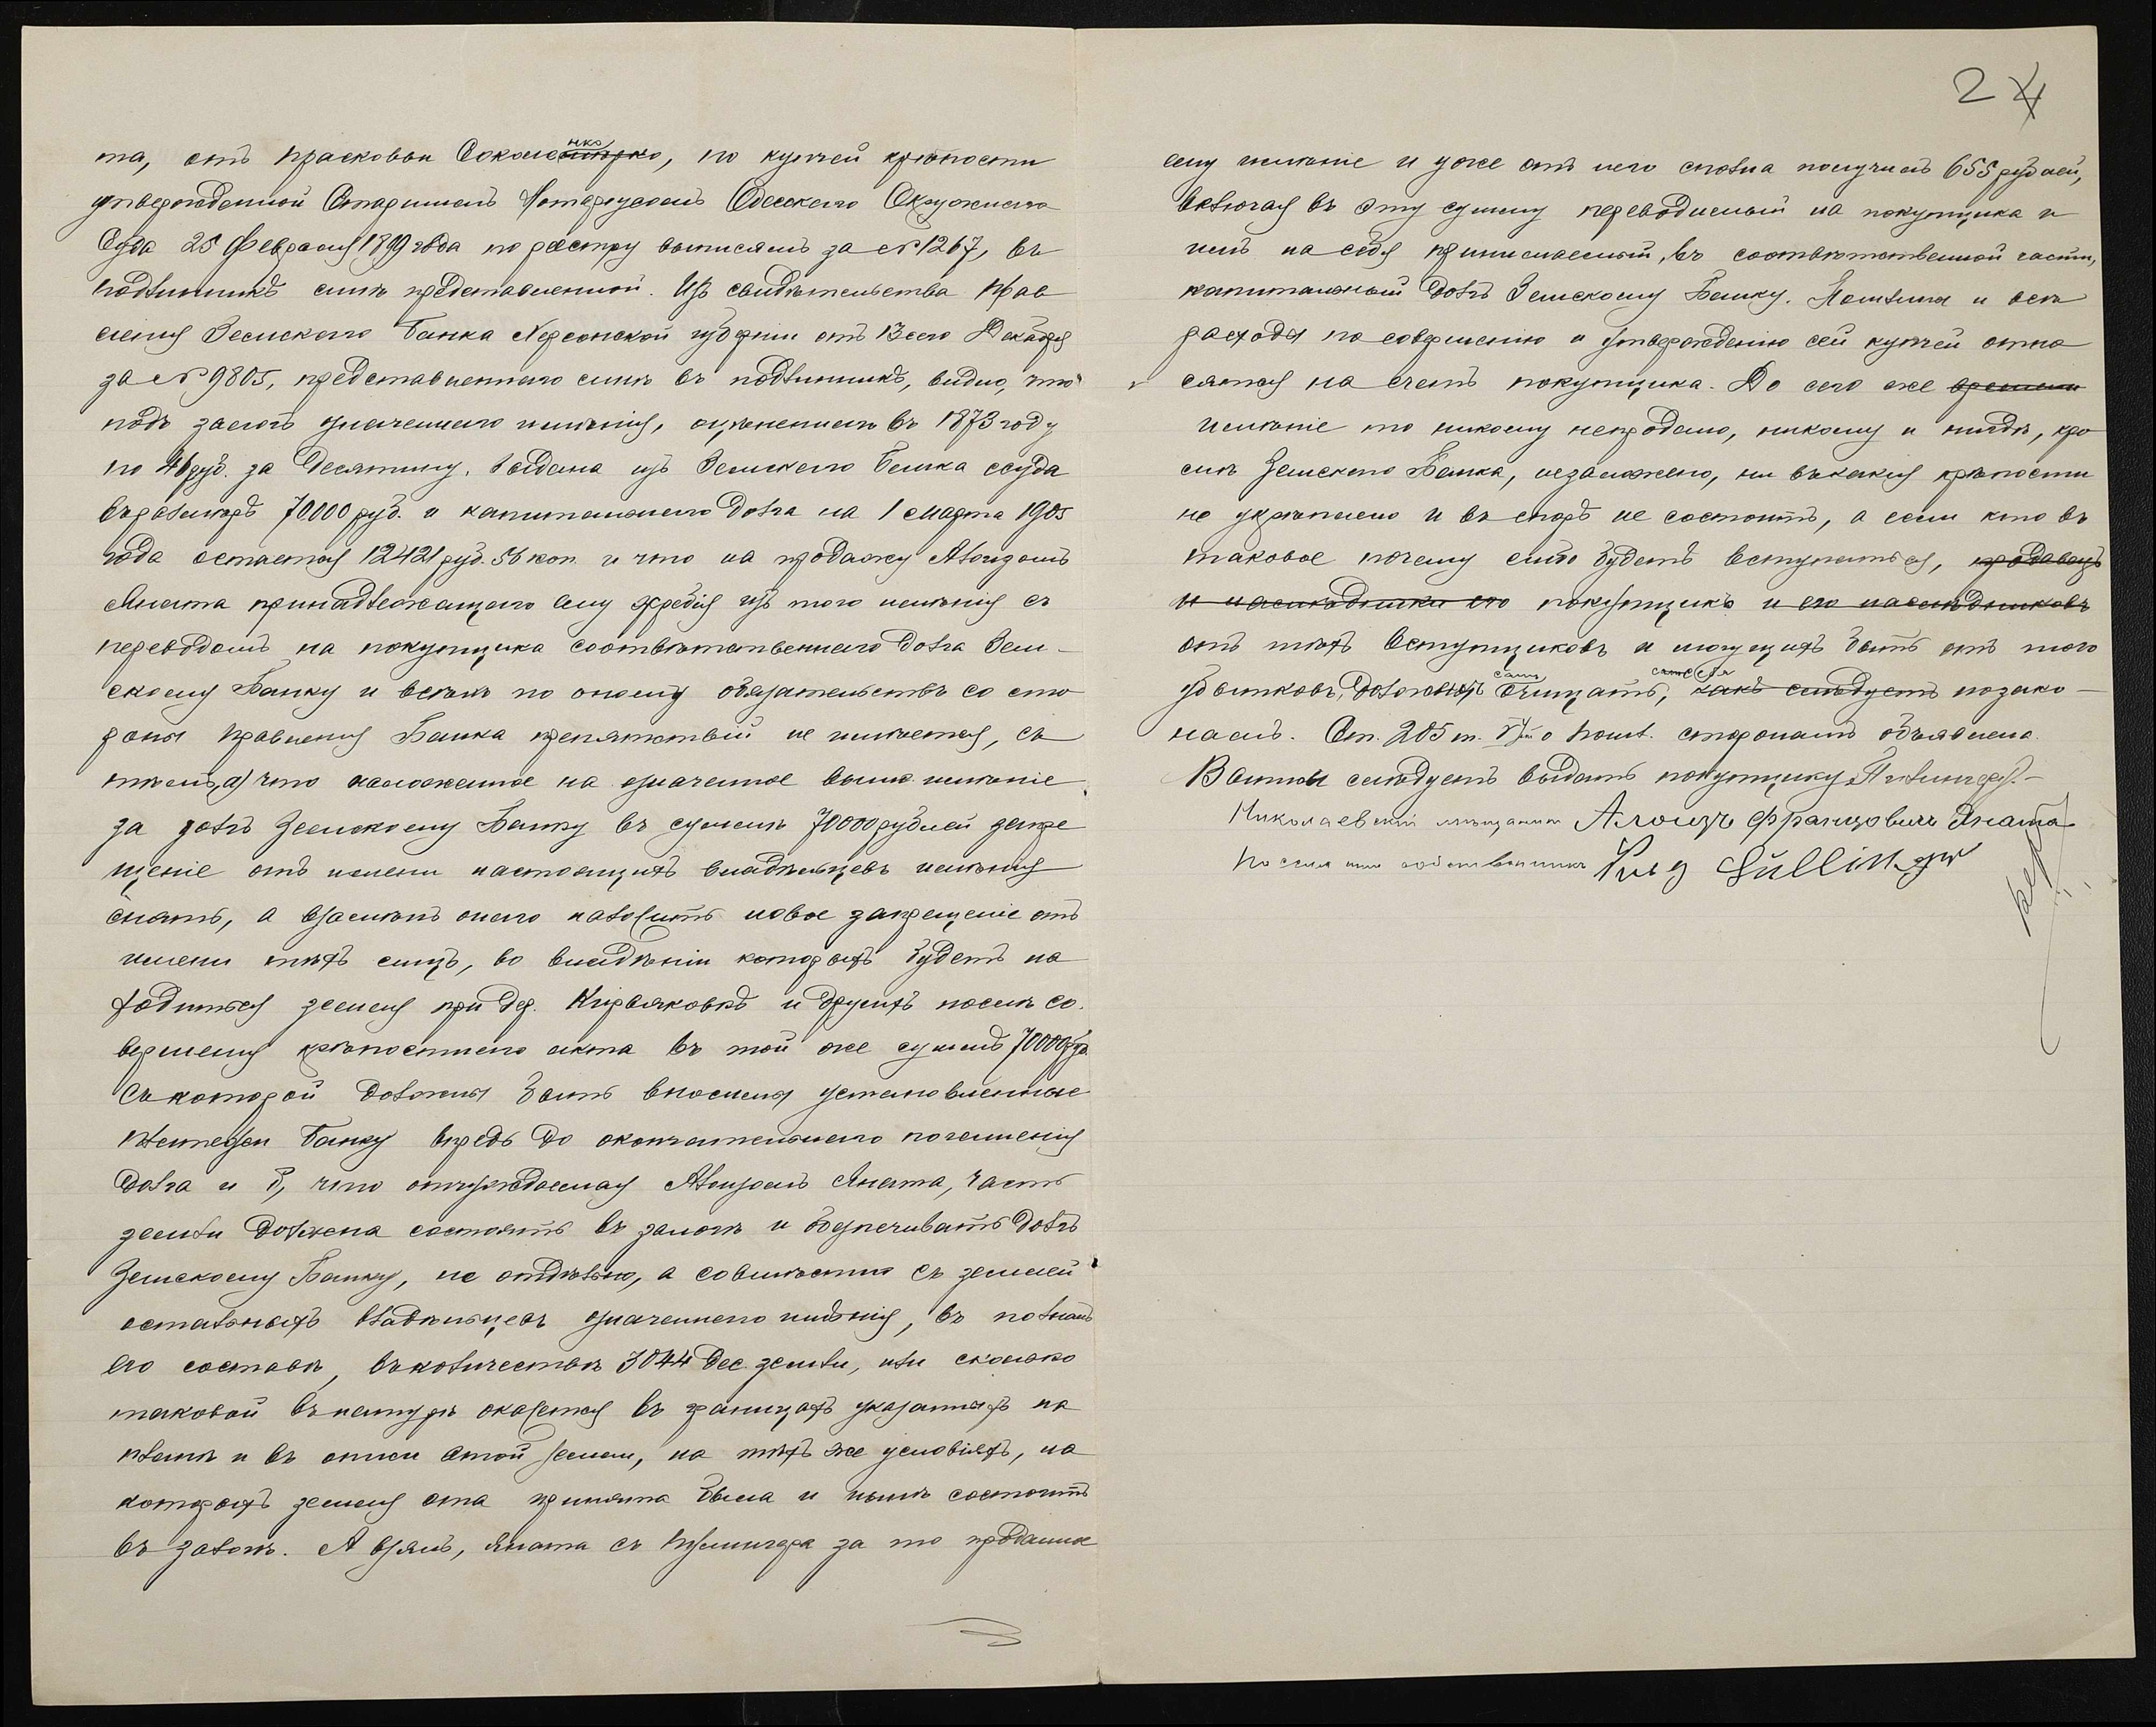 24
та, отъ Прасковьи Соколенко, по купчей крѣпости
утвержденной Старшимъ Нотаріусомъ Одесскаго Окружнаго
Суда 25 Февраля 1899 года по реестру выписямъ за № 1267, въ
подлинникѣ симъ представленной. Изъ свидѣтельства Прав
ленія Земскаго Банка Херсонской губерніи отъ 13 сего Декабря
за № 9805, представленнаго симъ въ подлинникѣ, видно, что
подъ залогъ означеннаго имѣнія, оцѣненнаго въ 1873 году
по 46 руб. за десятину, выдана изъ Земскаго Банка ссуда
въ размѣрѣ 70000 руб. и капитальнаго долга на 1 Марта 1905
года остается 12421 руб. 56 коп. и что на продажу Алоизомъ
Яната принадлежащаго ему жребія изъ того имѣнія съ
переводомъ на покупщика соотвѣтственнаго долга Зем-
скому Банку и всѣхъ по оному обязательствъ со сто
роны Правленія Банка препятствій не имѣется, съ
тѣмъ, а) что наложенное на означенное выше имѣніе
за долгъ Земскому Банку въ суммѣ 70000 рублей запре
щеніе отъ имени настоящихъ владѣльцевъ имѣнія
снять, а взамѣнъ онаго наложить новое запрещеніе отъ
имени тѣхъ лицъ, во владѣніи которыхъ будетъ на
ходиться земля при дер. Киряковкѣ и другихъ послѣ со
вершенія крѣпостнаго акта въ той же суммѣ 70000 руб.
съ которой должны быть вносимы установленные
платежи Банку впредь до окончательнаго погашенія
долга и б, что отчуждаемая Алоизомъ Яната, часть
земли должна состоять въ залогѣ и обезпечивать долгъ
Земскому Банку, не отдѣльно, а совмѣстно съ землей
остальныхъ владѣльцевъ означеннаго имѣнія, въ полномъ
его составѣ, въ количествѣ 3044 дес. земли, или сколько
таковой въ натурѣ окажется въ границахъ указанныхъ на
планѣ и въ описи этой земли, на тѣхъ же условіяхъ, на
которыхъ земля эта принята была и нынѣ состоитъ
въ залогѣ. А взялъ, Яната съ за то проданное
ему имѣніе и уже отъ него сполна получилъ 655 рублей,
включая въ эту сумму переводимый на покупщика и
имъ на себя принимаемый, въ соотвѣтственной части,
капитальный долгъ Земскому Банку. Пошлина и всѣ
расходы по совершенію и утвержденію сей купчей отно
сятся на счетъ покупщика. До сего же времени
имѣніе то никому не продано, никому и нигдѣ, кро
мѣ Земскаго Банка, не заложено, ни въ какія крѣпости
не укрѣплено и въ спорѣ не состоитъ, а если кто въ
таковое почему либо будетъ вступаться, продавецъ
и наслѣдники его покупщикъ и его наслѣдниковъ
отъ тѣхъ вступщиковъ и могущихъ быть отъ того
самъ себя
убытковъ, долженъ очищать, какъ слѣдуетъ по зако-
намъ. Ст. 205 т. V о пошл. сторонамъ объявлена.
Выпись слѣдуетъ выдать покупщику
Николаевскій мѣщанинъ Алоизъ Францовичъ Яната
Поселянинъ собственникъ